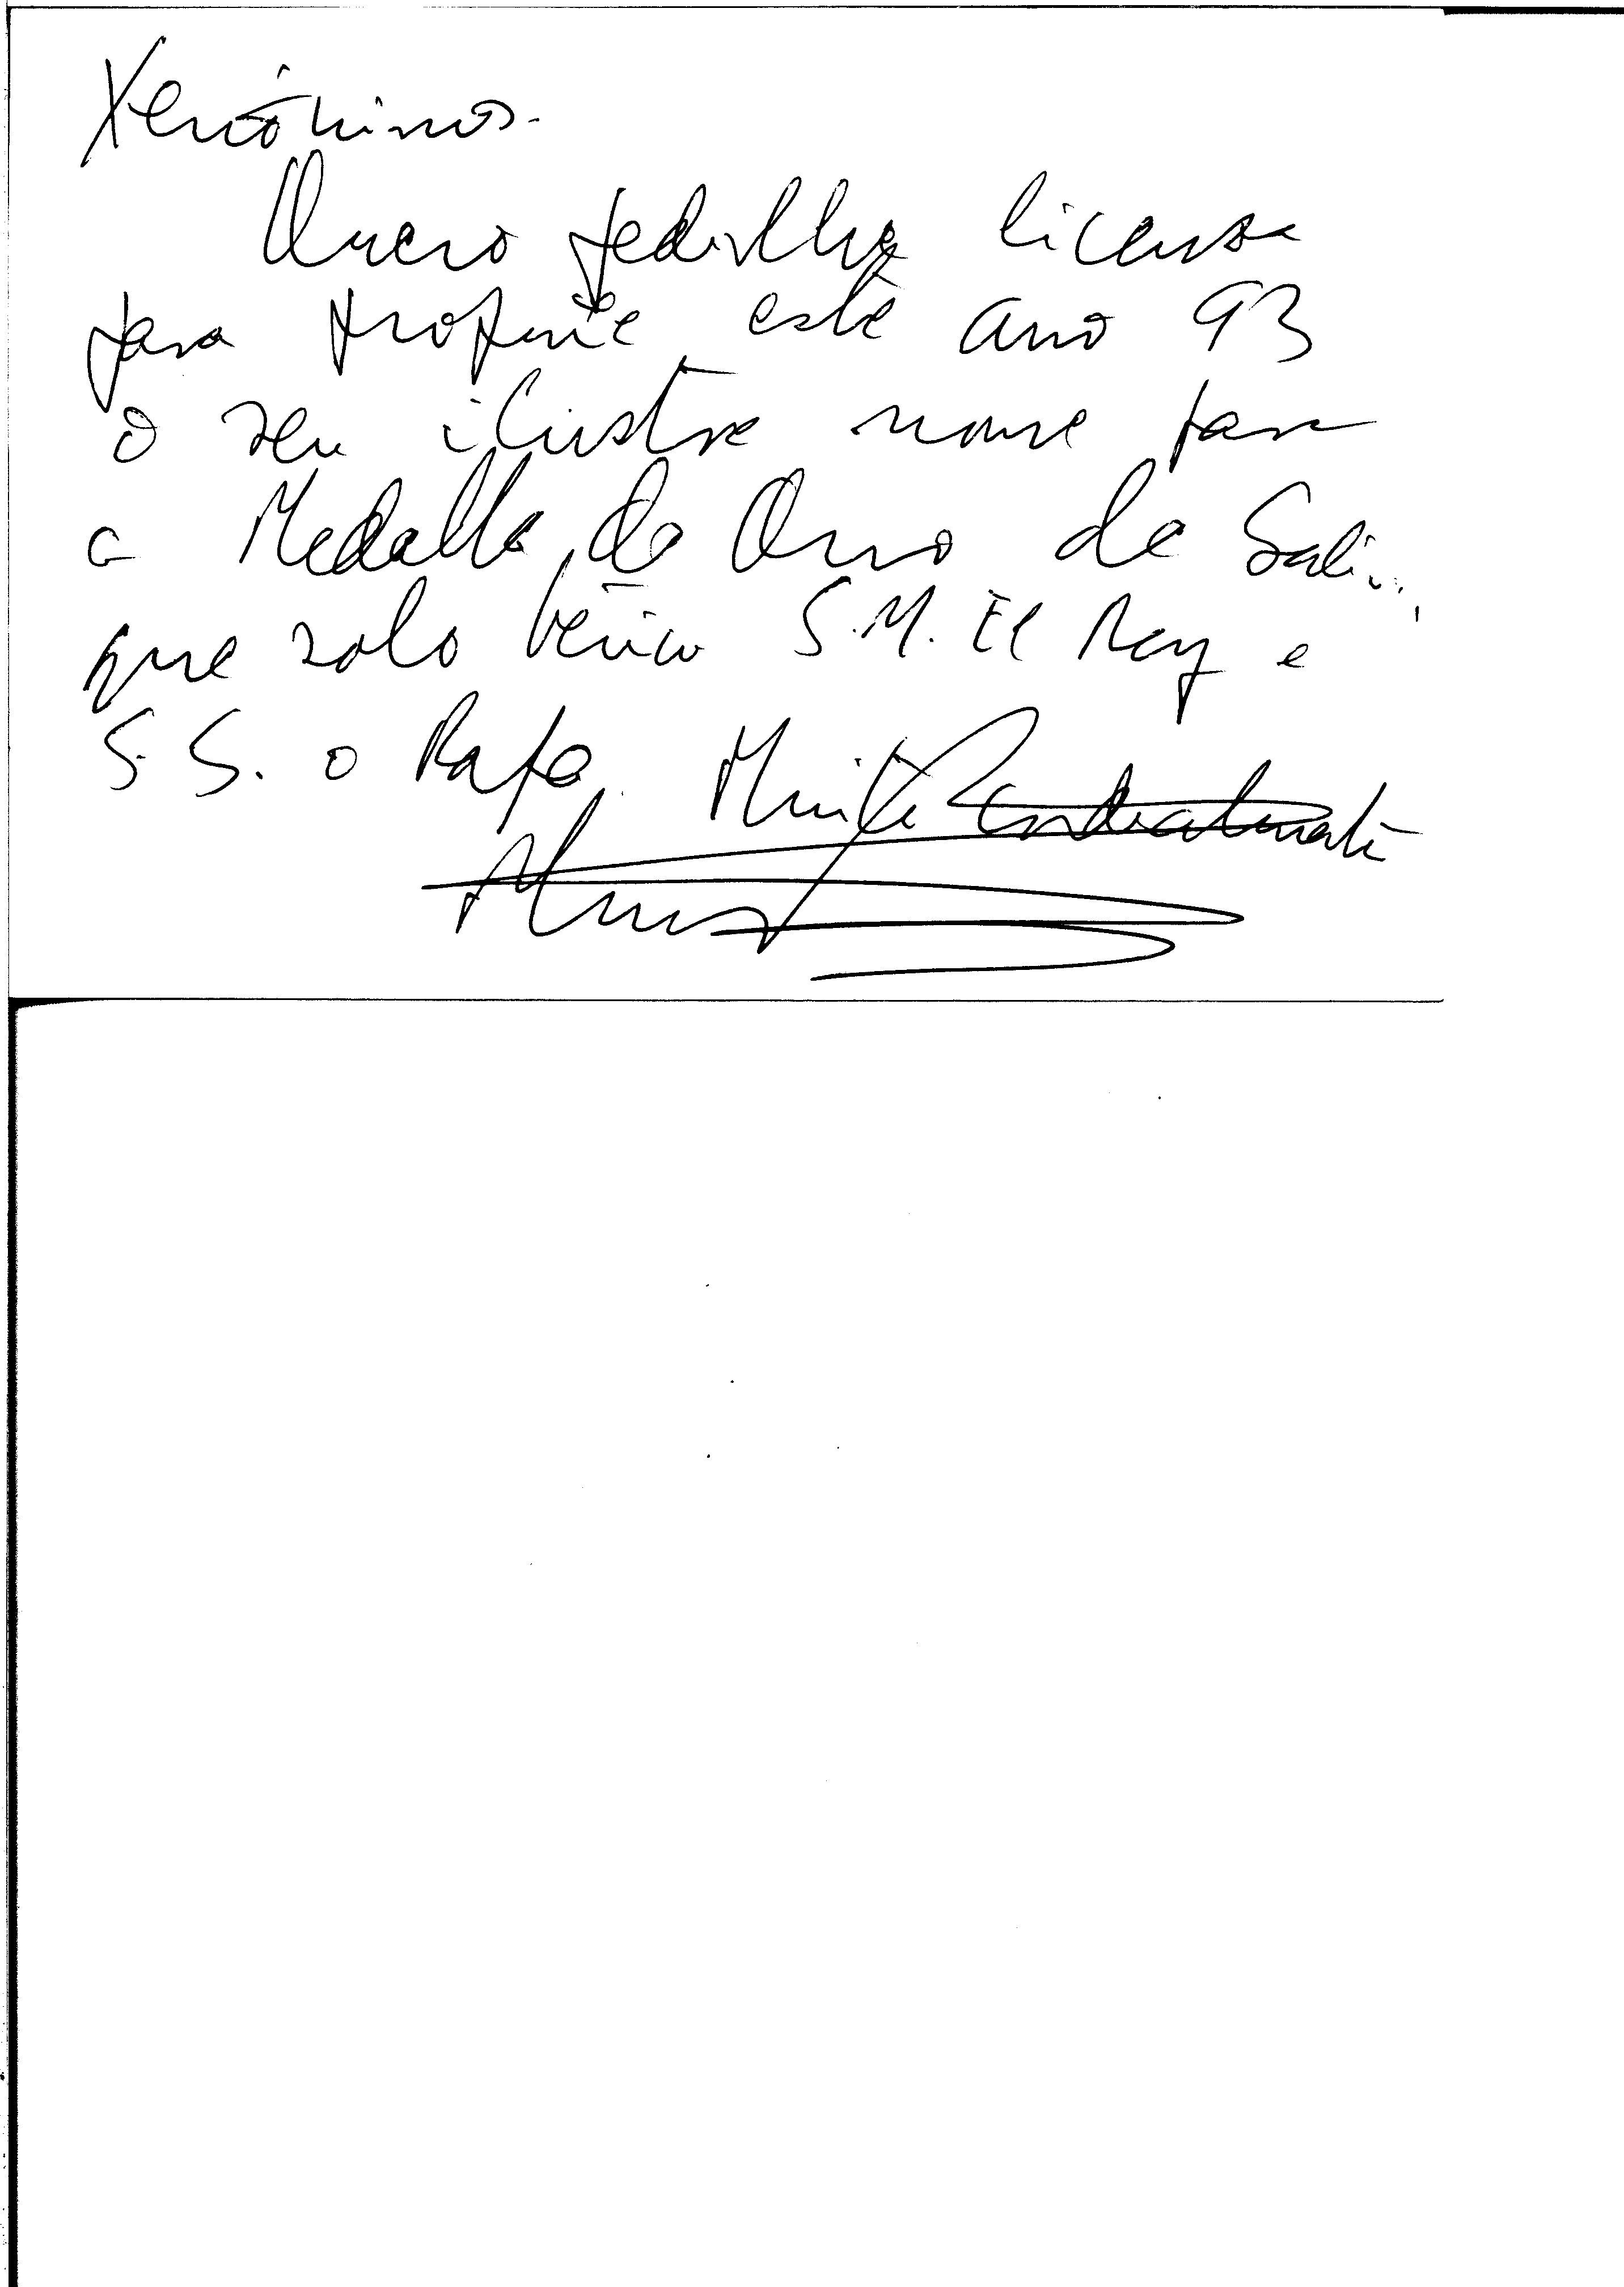 Xerónimos.
Quero pedirlle licensa
para propoñe este ano 93
o seu ilustre nome para
a Medalla de Ouro de Galicia,
que solo teñen S.M. El Rey e
S.S. o Papa. Moi